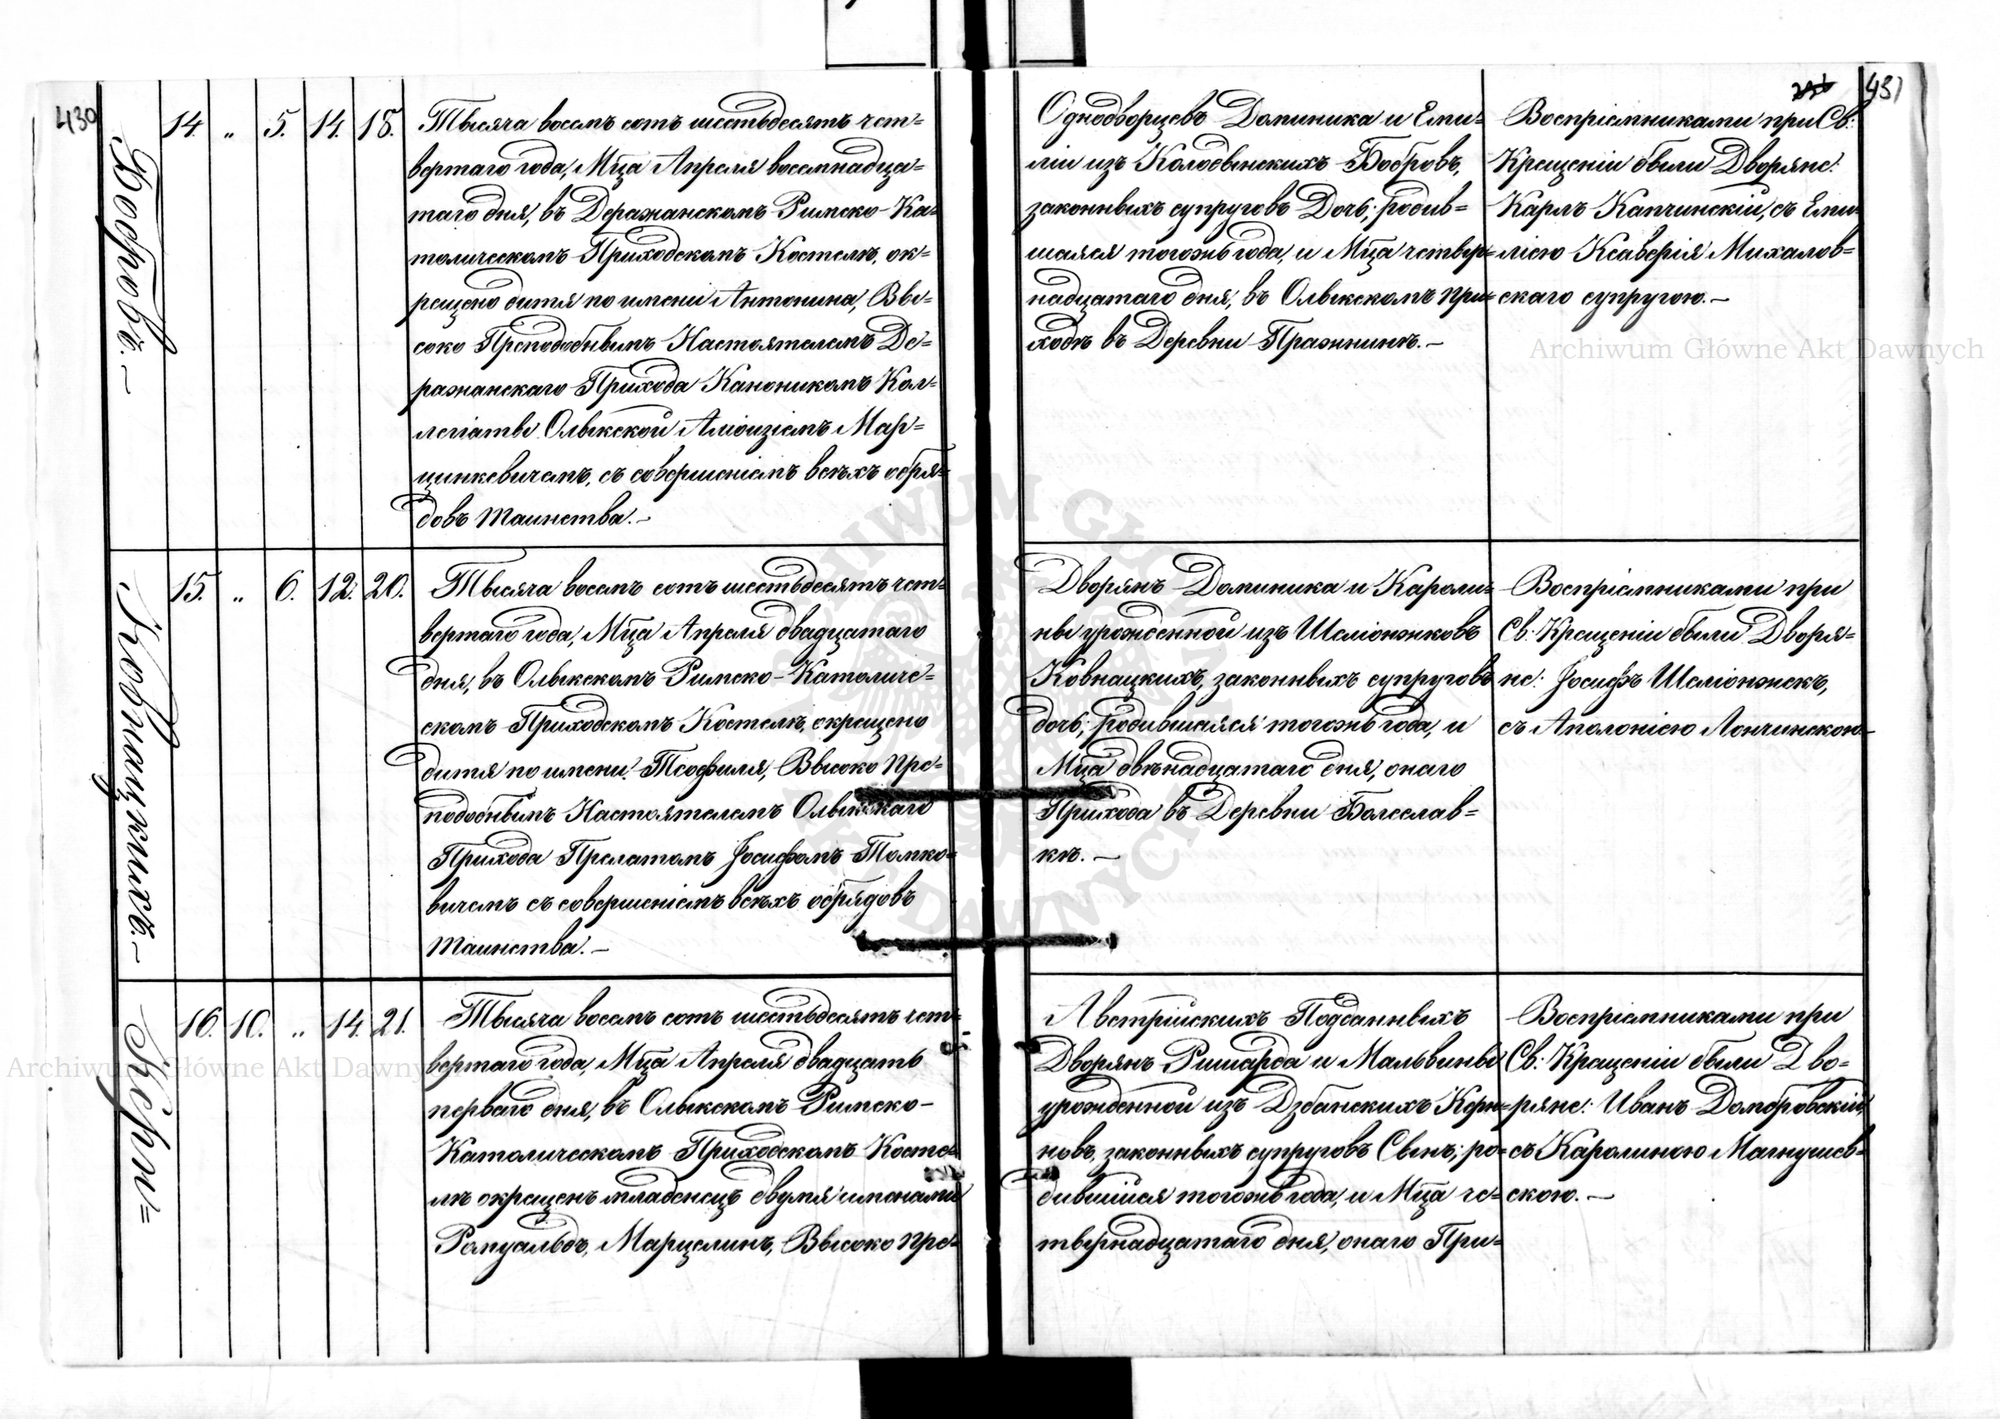 430
431
Бобровъ.—
14 „ 5. 14. 18.
Тысяча восемъ сотъ шестьдесятъ чет=
вертаго года, Мца Апреля восемнадца=
таго дня, въ Деражанскомъ Римско Ка=
толическомъ Приходскомъ Костелѣ, ок=
рещено дитя по имени Антонина, Вы=
соко Преподобнымъ Настоятелемъ Де=
ражанскаго Прихода Каноникомъ Кол=
легіаты Олыкской Алоизіемъ Мар=
цинкевичемъ, съ совершеніемъ всѣхъ обря=
довъ таинства.—
Однодворцевъ Доминика и Еми=
ліи изъ Колодынскихъ Бобровъ,
законныхъ супруговъ Дочь; родив=
шаяся тогожъ года, и Мца четвер=
надцатаго дня, въ Олыкскомъ при=
ходѣ въ Деревни Пражнинѣ.—
Воспріемниками при Св:
Крещеніи были Дворяне:
Карлъ Капчинскій, съ Еми=
ліею Ксаверія Михалов=
скаго супругою.—
Ковнацкихъ.—
15. „ 6. 12. 20.
Тысяча восемъ сотъ шестьдесятъ чет=
вертаго года, Мца Апреля двадцатаго
дня, въ Олыкскомъ Римско-Католиче=
скомъ Приходскомъ Костелѣ, окрещено
дитя по имени Теофиля, Высоко Пре=
подобнымъ Настоятелемъ Олыкскаго
Прихода Прелатомъ Іосифомъ Томко=
вичемъ съ совершеніемъ всѣхъ обрядовъ
таинства.—
Дворянъ Доминика и Кароли=
ны урожденной изъ Шеліонжковъ
Ковнацкихъ, законныхъ супруговъ
дочь; родившаяся тогожъ года, и
Мца двѣнадцатаго дня, онаго
Прихода въ Деревни Болеслав=
кѣ.—
Воспріемниками при
Св: Крещеніи были Дворя=
не: Іосифъ Шеліонжекъ,
съ Аполоніею Лончинскою.
Керн=
16. 10. „ 14. 21.
Тысяча восемъ сотъ шестьдесятъ чет=
вертаго года, Мца Апреля двадцать
перваго дня, въ Олыкскомъ Римско-
Католическомъ Приходскомъ Косте=
лѣ окрещенъ младенецъ двумя именами
Ромуальдъ, Марцелинъ, Высоко Пре=
Австрійскихъ Подданныхъ
Дворянъ Ришарда и Мальвины
урожденной изъ Дзбанскихъ Керн=
новъ, законныхъ супруговъ Сынъ; ро=
дившійся тогожъ года, и Мца че=
твернадцатаго дня, онаго При=
Воспріемниками при
Св: Крещеніи были Дво=
ряне: Иванъ Домбровскій
съ Каролиною Магнушев=
скою.—
Archiwum Główne Akt Dawnych
Archiwum Główne Akt Dawnych